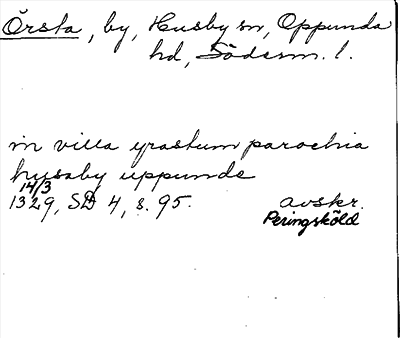 Örsta, by, Husby sn, Oppunda
hd, Söderm. l.
in villa yrastum parochia
husaby uppunde
14/3
1329, SD 4, s. 95. avskr.
Peringsköld